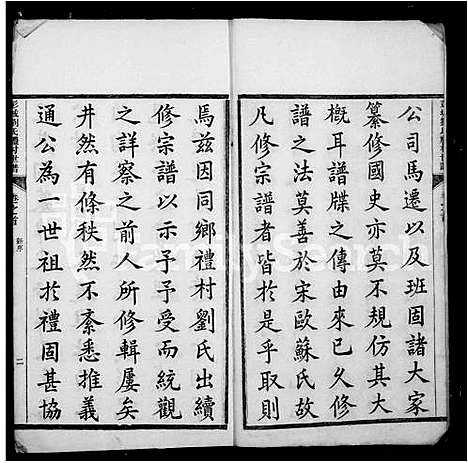 公司馬遷以及班固諸大家
纂修國史亦莫不規仿其大
概耳譜牒之傳由來已久修
譜之法莫善於宋歐蘇氏故
凡修宗譜者皆於是乎取則
馬茲因同鄉禮村劉氏出續
修宗譜以示予予受而統觀
之詳察之前人所修輯屢矣
井然有條秩然不紊悉推義
通公為一世祖於禮固甚協
彭城劉氏禮村世譜
卷之首
新序
二
FamilySearch